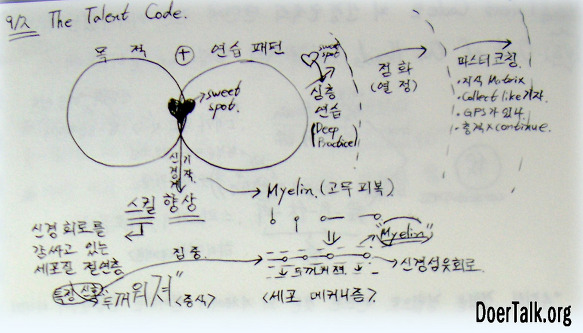 9/2 The Talent Code.
목적 + 연습 패턴
sweet spot.
sweet spot
심층 연습
(Deep Practice)
점화
(열정)
마스터 코칭
· 지식 Matrix
· Collect like 기자.
· GPS가 되나
· 충격 x continue.
신경계
스킬 향상
Myelin. (고무 피복)
"Myelin"
신경회로를
감싸고 있는
세포질 절연층
집중
특정 신호
두꺼워져"
<증식>
두꺼워져.
신경섬유회로.
<세포 메커니즘>
DoerTalk.org